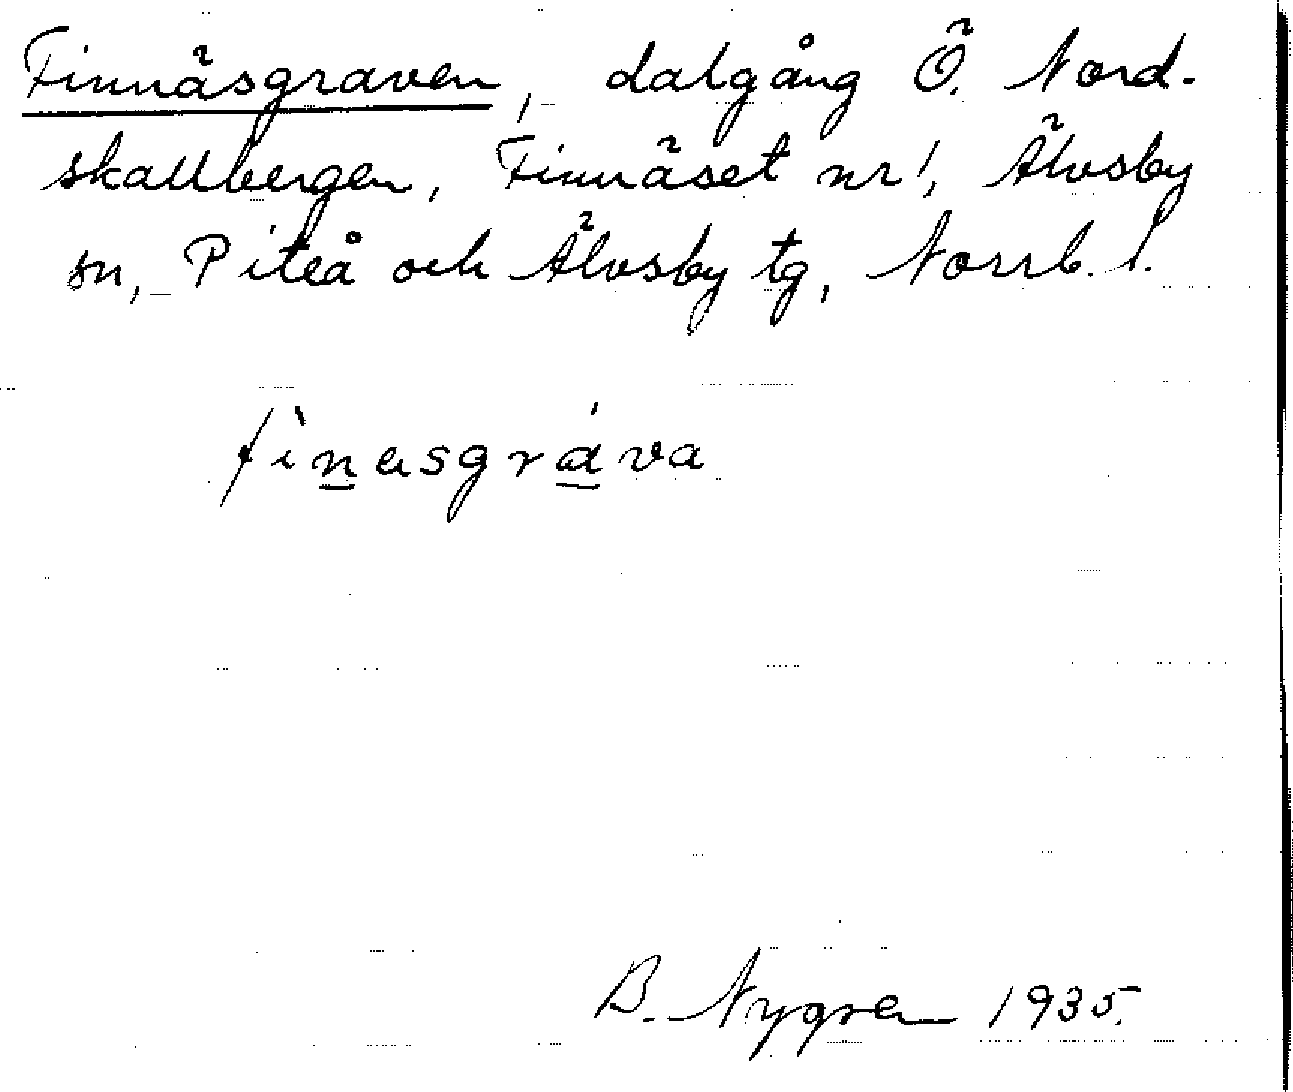 Finnäsgraven, dalgång Ö. Nord-
skallbergen, Finnäset nr 1, Älvsby
sn, Piteå och Älvsby tg, Norrb. l.
fìnasgráva
B. Nygren 1935.